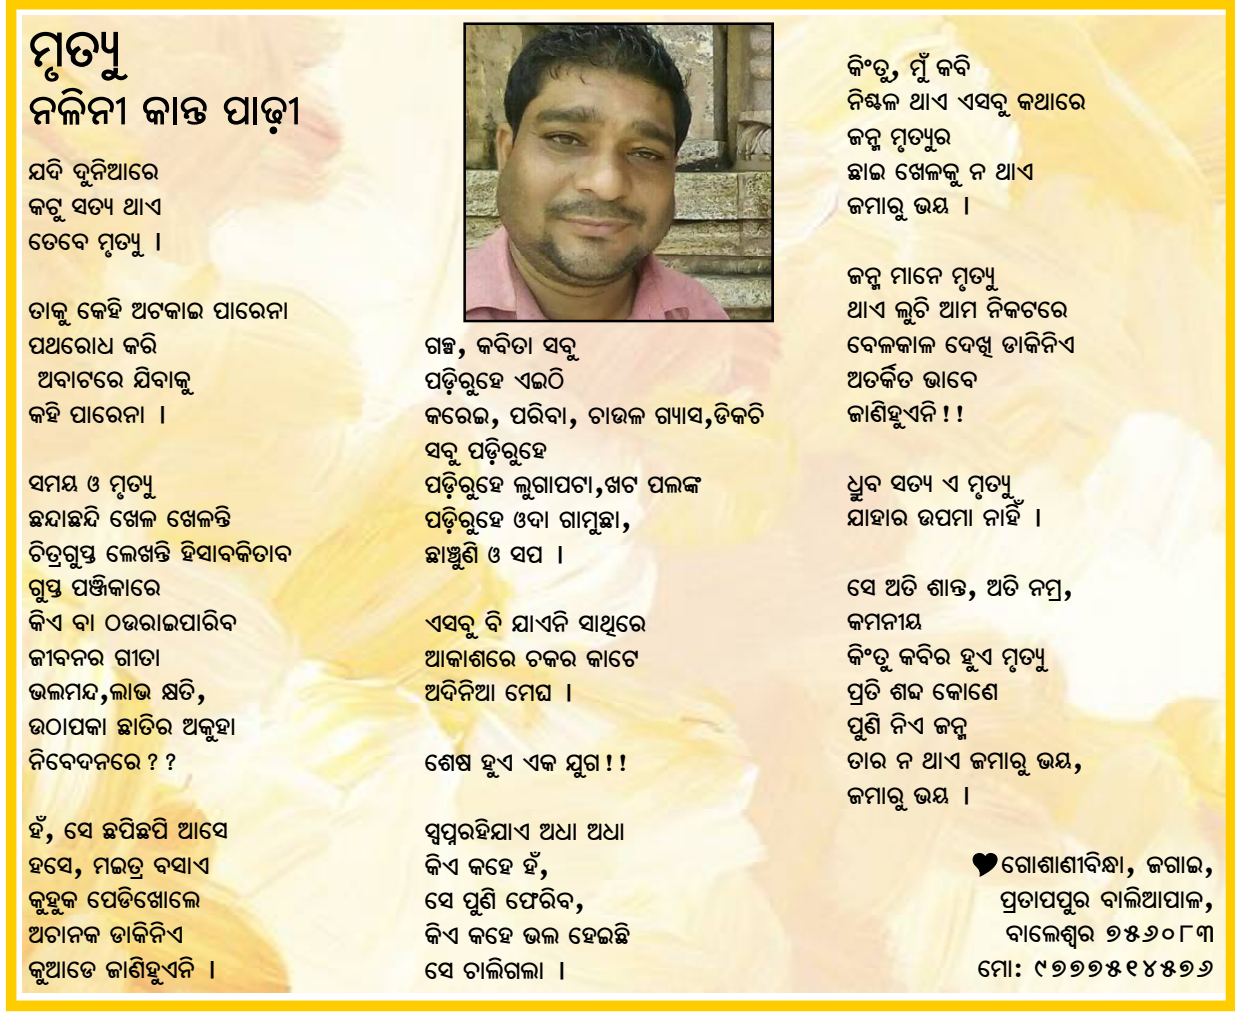 ମୃତ୍ୟୁ
ନଳିନୀ କାନ୍ତ ପାଢ଼ୀ
ଯଦି ଦୁନିଆରେ
କଟୁ ସତ୍ୟ ଥାଏ
ତେବେ ମୃତ୍ୟୁ ।
ତାକୁ କେହି ଅଟକାଇ ପାରେନା
ପଥରୋଧ କରି
ଅବାଟରେ ଯିବାକୁ
କହି ପାରେନା ।
ସମୟ ଓ ମୃତ୍ୟୁ
ଛନ୍ଦାଛନ୍ଦି ଖେଳ ଖେଳନ୍ତି
ଚିତ୍ରଗୁପ୍ତ ଲେଖନ୍ତି ହିସାବକିତାବ
ଗୁପ୍ତ ପଞ୍ଜିକାରେ
କିଏ ବା ଠଉରାଇପାରିବ
ଜୀବନର ଗୀତା
ଭଲମନ୍ଦ,ଲାଭ କ୍ଷତି,
ଉଠାପକା ଛାତିର ଅକୁହା
ନିବେଦନରେ ? ?
ହଁ, ସେ ଛପିଛପି ଆସେ
ହସେ, ମଇତ୍ର ବସାଏ
କୁହୁକ ପେଡିଖୋଲେ
ଅଚାନକ ଡାକିନିଏ
କୁଆଡେ ଜାଣିହୁଏନି ।
ଗଳ୍ପ, କବିତା ସବୁ
ପଡ଼ିରୁହେ ଏଇଠି
କରେଇ, ପରିବା, ଚାଉଳ ଗ୍ୟାସ,ଡିକଚି
ସବୁ ପଡ଼ିରୁହେ
ପଡ଼ିରୁହେ ଲୁଗାପଟା,ଖଟ ପଲଙ୍କ
ପଡ଼ିରୁହେ ଓଦା ଗାମୁଛା,
ଛାଞ୍ଚୁଣି ଓ ସପ ।
ଏସବୁ ବି ଯାଏନି ସାଥିରେ
ଆକାଶରେ ଚକର କାଟେ
ଅଦିନିଆ ମେଘ ।
ଶେଷ ହୁଏ ଏକ ଯୁଗ ! !
ସ୍ୱପ୍ନରହିଯାଏ ଅଧା ଅଧା
କିଏ କହେ ହଁ,
ସେ ପୁଣି ଫେରିବ,
କିଏ କହେ ଭଲ ହେଇଛି
ସେ ଚାଲିଗଲା ।
କିଂତୁ, ମୁଁ କବି
ନିଶ୍ଚଳ ଥାଏ ଏସବୁ କଥାରେ
ଜନ୍ମ ମୃତ୍ୟୁର
ଛାଇ ଖେଳକୁ ନ ଥାଏ
ଜମାରୁ ଭୟ ।
ଜନ୍ମ ମାନେ ମୃତ୍ୟୁ
ଥାଏ ଲୁଚି ଆମ ନିକଟରେ
ବେଳକାଳ ଦେଖି ଡାକିନିଏ
ଅତର୍କିତ ଭାବେ
ଜାଣିହୁଏନି ! !
ଧ୍ରୁବ ସତ୍ୟ ଏ ମୃତ୍ୟୁ
ଯାହାର ଉପମା ନାହିଁ ।
ସେ ଅତି ଶାନ୍ତ, ଅତି ନମ୍ର,
କମନୀୟ
କିଂତୁ କବିର ହୁଏ ମୃତ୍ୟୁ
ପ୍ରତି ଶବ୍ଦ କୋଣେ
ପୁଣି ନିଏ ଜନ୍ମ
ତାର ନ ଥାଏ ଜମାରୁ ଭୟ,
ଜମାରୁ ଭୟ ।
ଗୋଶାଣୀବିନ୍ଧା, ଜଗାଇ,
ପ୍ରତାପପୁର ବାଲିଆପାଳ,
ବାଲେଶ୍ୱର ୭୫୬୦୮୩
ମୋ: ୯୭୭୭୫୧୪୫୭୬